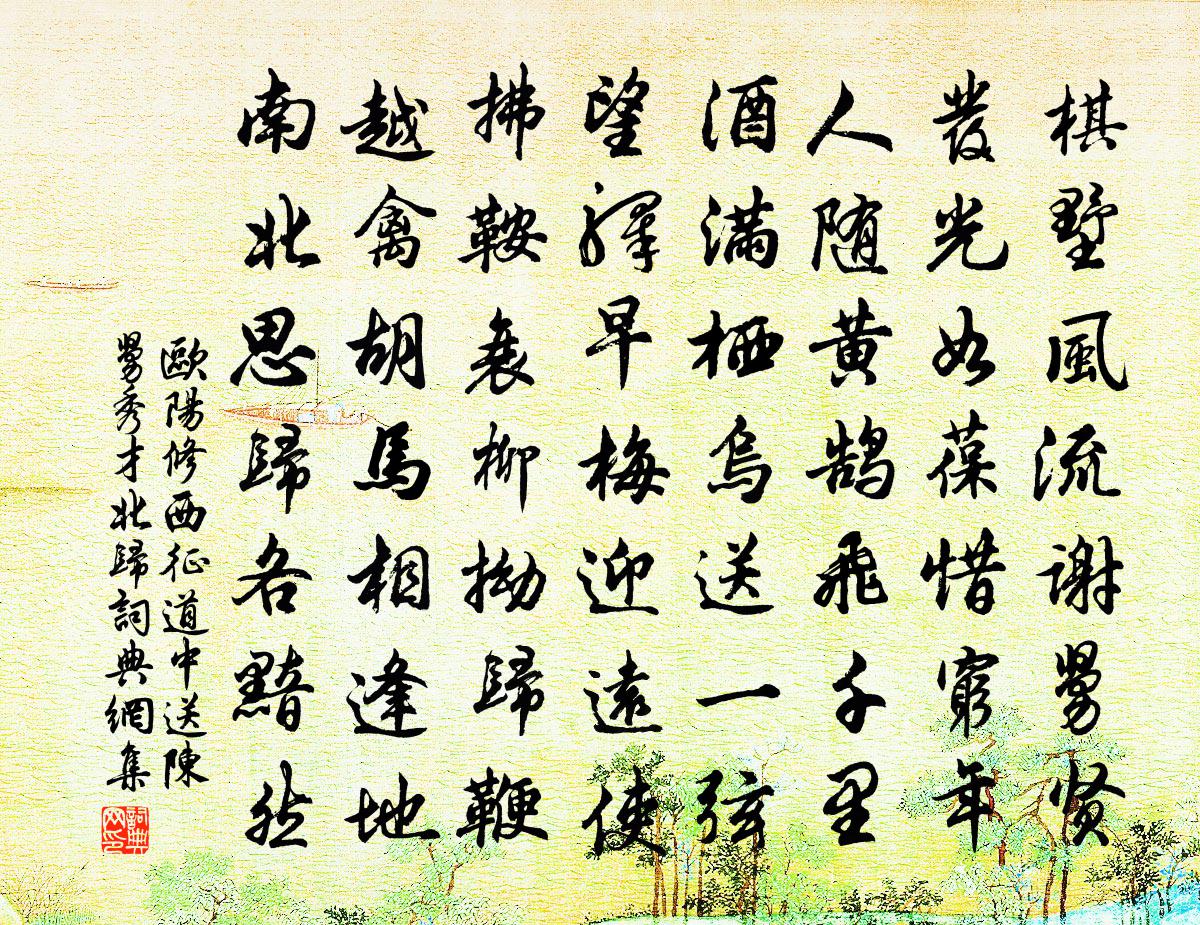 棋墅風流谢舅贤
發光如葆惜窮年
人随黄鹄飛千里
酒滿栖烏送一弦
望驛早梅迎遠使
拂鞍衰柳拗歸鞭
越禽胡馬相逢地
南北思歸各黯然
歐陽修西征道中送陳
舅秀才北歸詞典網集
詞典網印